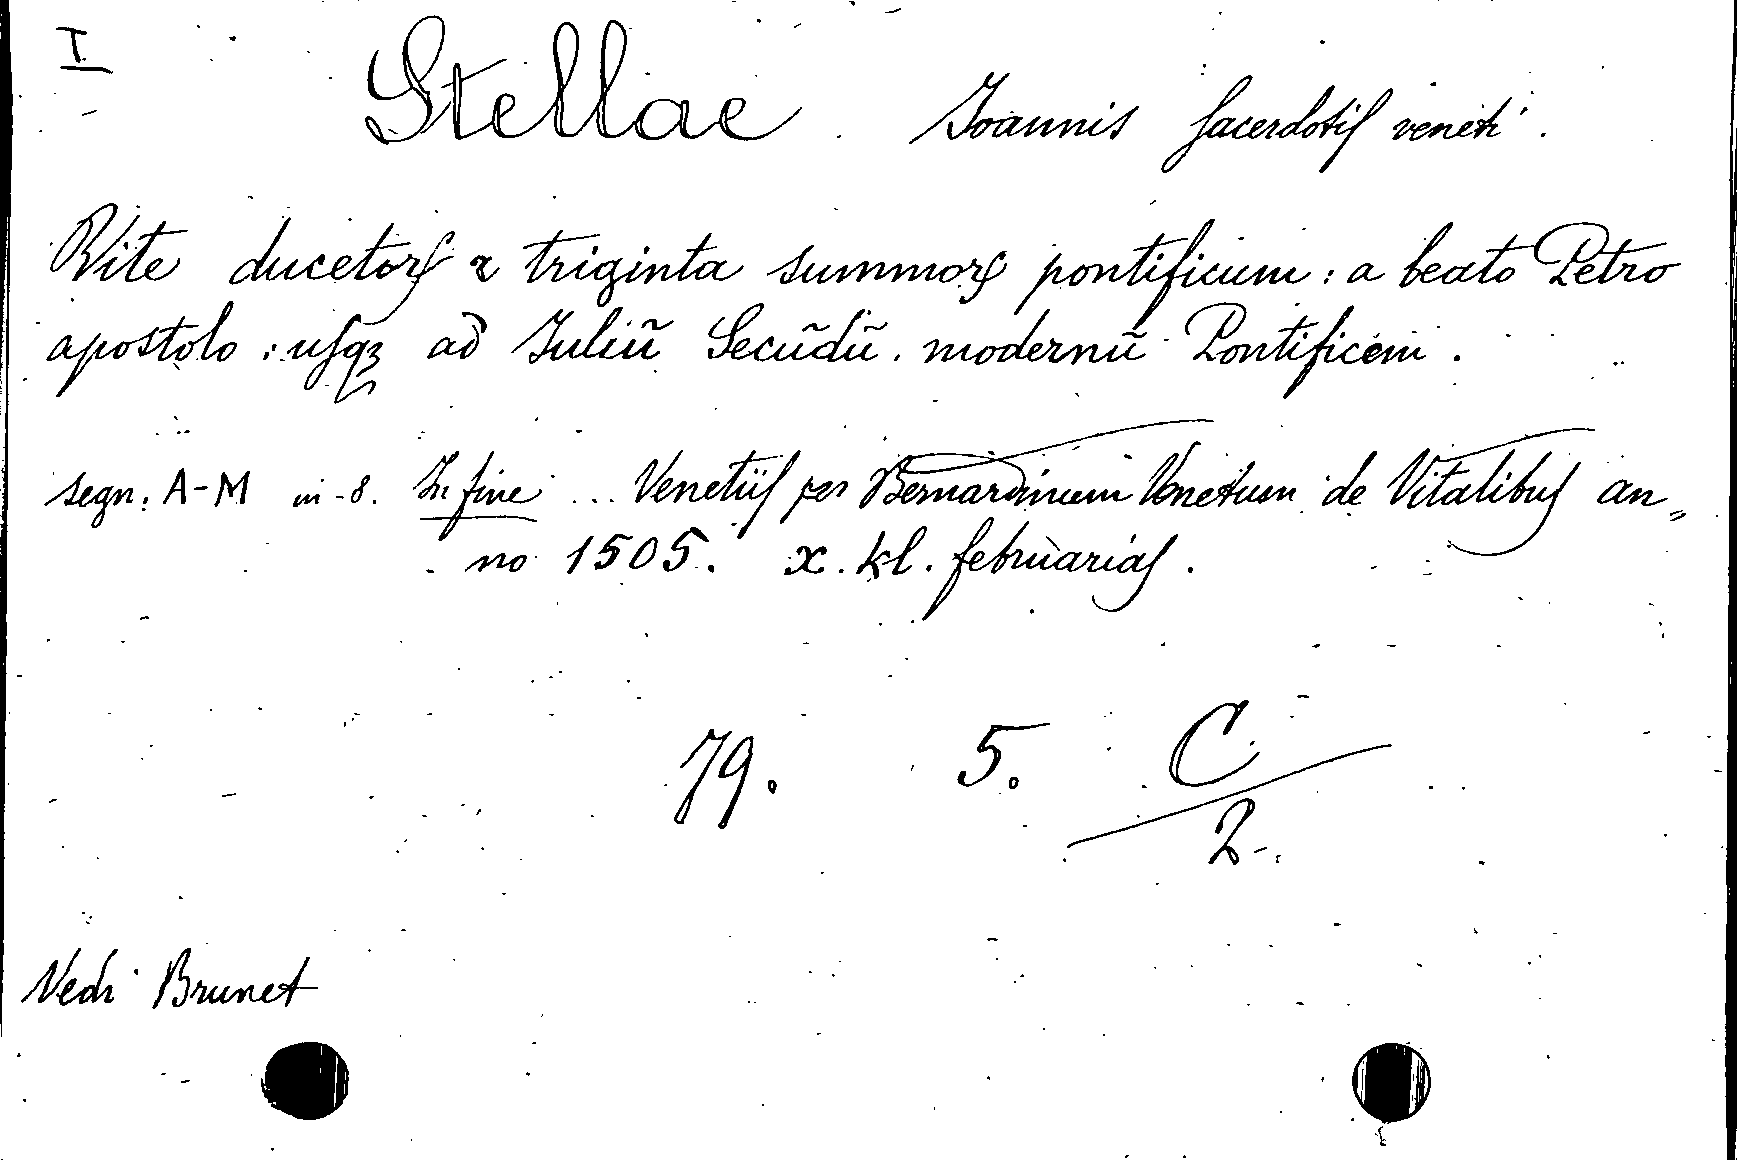 I
Stellae Joannis sacerdotiſ veneti.
Vite ducetorꝝ & triginta summorꝝ pontificum: a beato Petro
apostolo: uſqꝫ ad Juliũ Secũdũ. modernũ Pontificem.
segn: A-M in-8. In fine ... Venetiiſ per Bernardinum Venetum de Vitalibuſ an„
no 1505. x. kl. februariaſ.
79. 5. C
2.
Vedi Brunet